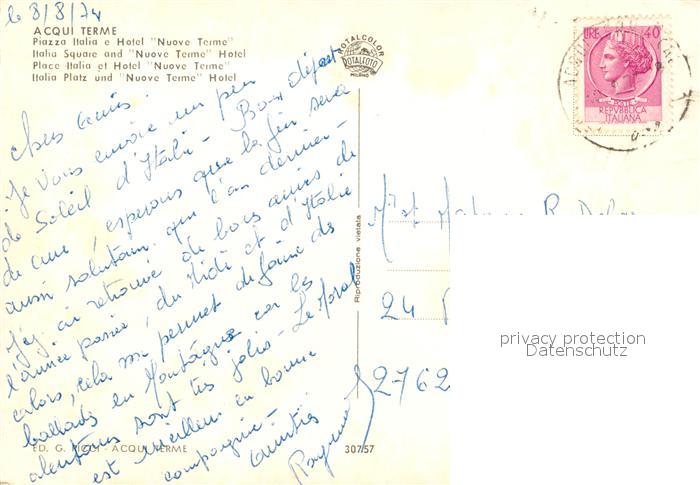 le 8/8/74
ACQUI TERME
Piazza Italia e Hotel "Nuove Terme"
Italia Square and "Nuove Terme" Hotel
Place Italia et Hotel "Nuove Terme"
Italia Platz und "Nuove Terme" Hotel
Chers Amis.
Je vous envoie un peu
de Soleil d'Italie - Bon départ
de cure, espérons que la fin sera
aussi salutaire que l'an dernier -
J'ai retrouvé de bons amis de
l'année passée, du Midi et d'Italie
alors, cela me permet de faire des
ballades en Montagne car les
alentours sont très jolis - Le Moral
est meilleur en bonne
compagnie -
Amitiés
Raymond
ED. G. PICCI - ACQUI TERME
30757
Riproduzione vietata
TOTALCOLOR
ROTALFOTO
MILANO
LIRE 40
POSTE
REPVBBLICA
ITALIANA
ACQUI
Mr et Madame R.
24
2762
privacy protection
Datenschutz